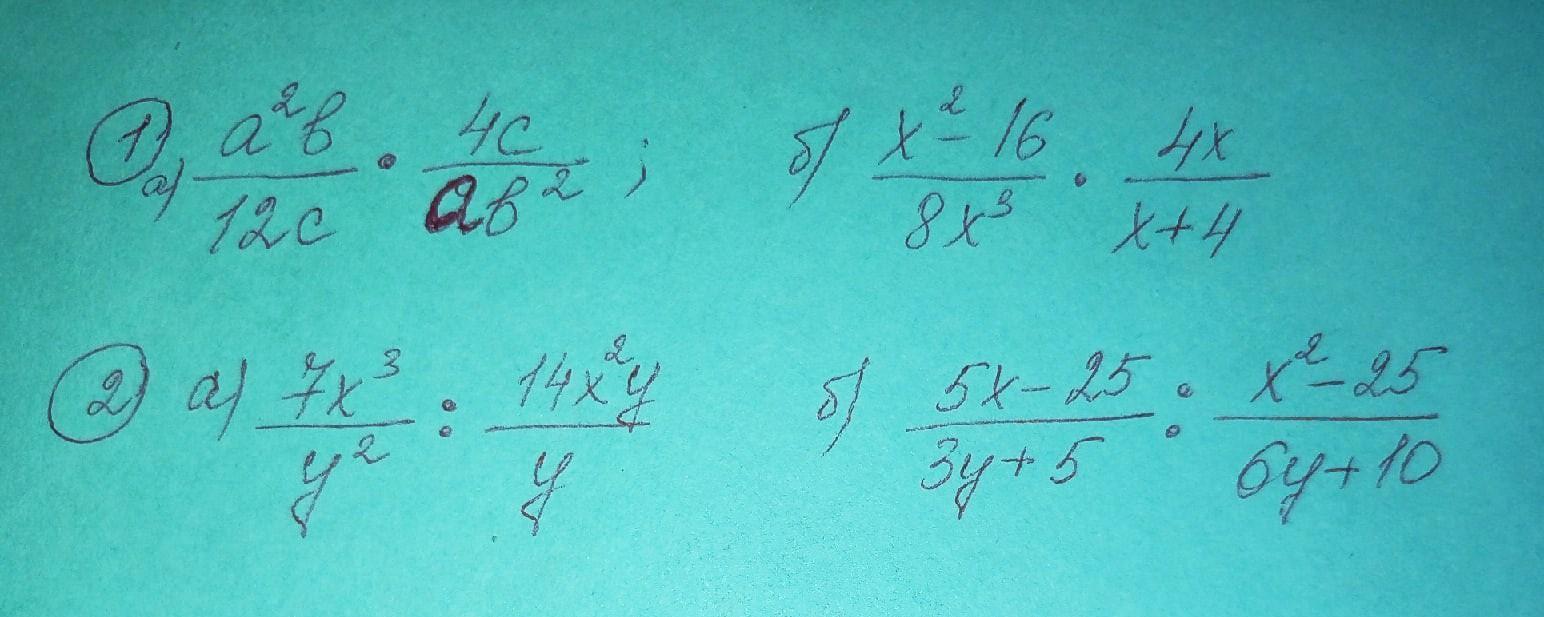 ① а) a²b/12c · 4c/ab² ; б) x²-16/8x³ · 4x/x+4
② а) 7x³/y² : 14x²y/y б) 5x-25/3y+5 : x²-25/6y+10